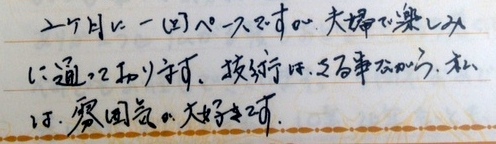 二ヶ月に一回ペースですが、夫婦で楽しみ
に通っております。技術は、さる事ながら、私
は、雰囲気が大好きです。